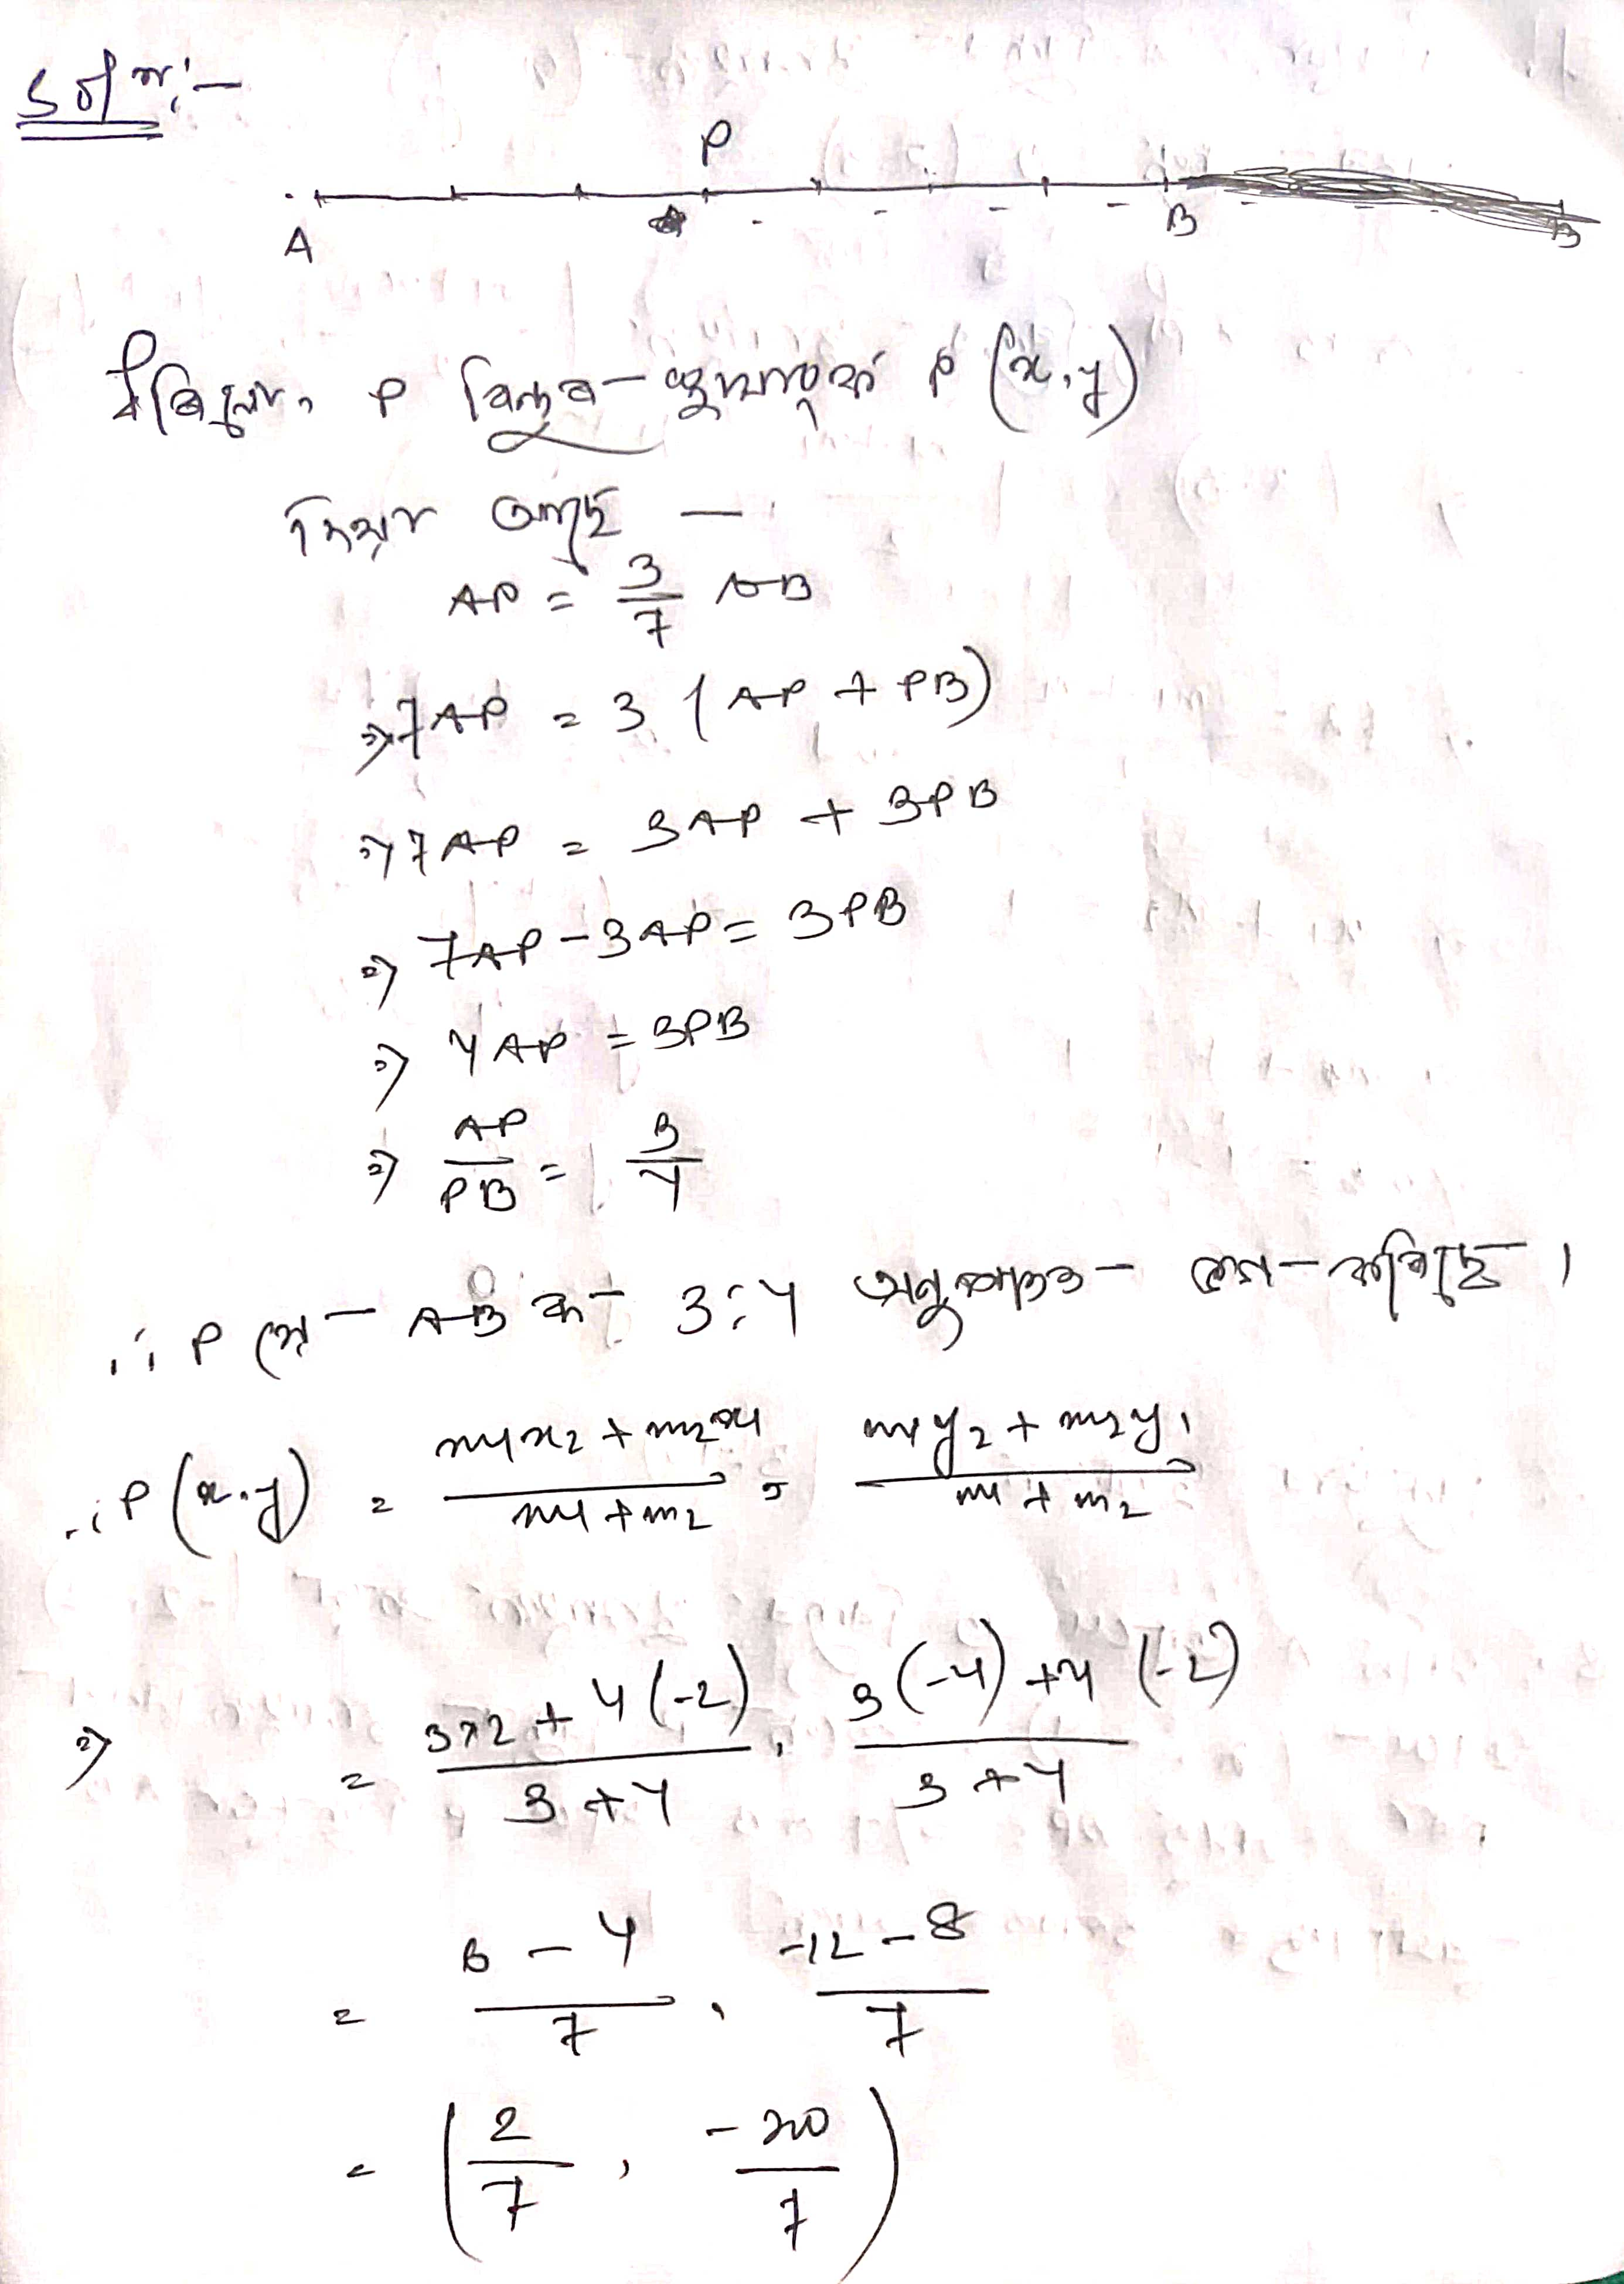 Solⁿ:-
P
A B B
ধৰিহলো, P বিন্দুৰ স্থানাংক P (x,y)
দিয়া আছে —
AP = 3/7 AB
⇒ 7AP = 3 (AP + PB)
⇒ 7AP = 3AP + 3PB
⇒ 7AP - 3AP = 3PB
⇒ 4AP = 3PB
⇒ AP/PB = 3/4
∴ P য়ে AB ক 3:4 অনুপাতত ভাগ কৰিছে।
∴ P(x,y) = (m1x2 + m2x1)/(m1 + m2), (m1y2 + m2y1)/(m1 + m2)
⇒ = (3×2 + 4(-2))/(3+4), (3(-4) + 4(-2))/(3+4)
= (6 - 4)/7, (-12 - 8)/7
= (2/7, -20/7)